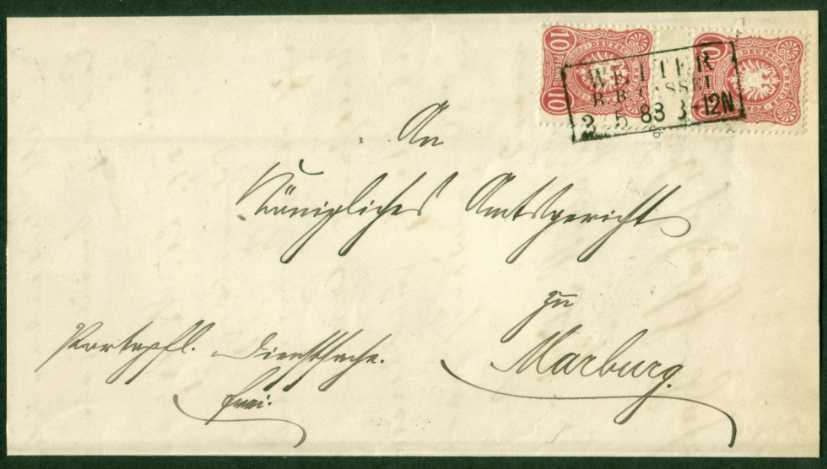 10 10
WETTER
R.B. CASSEL
3 5 83 8-12N
An
Königliches Amtsgericht
zu
Marburg.
Portopfl. Dienstsache.
frei.